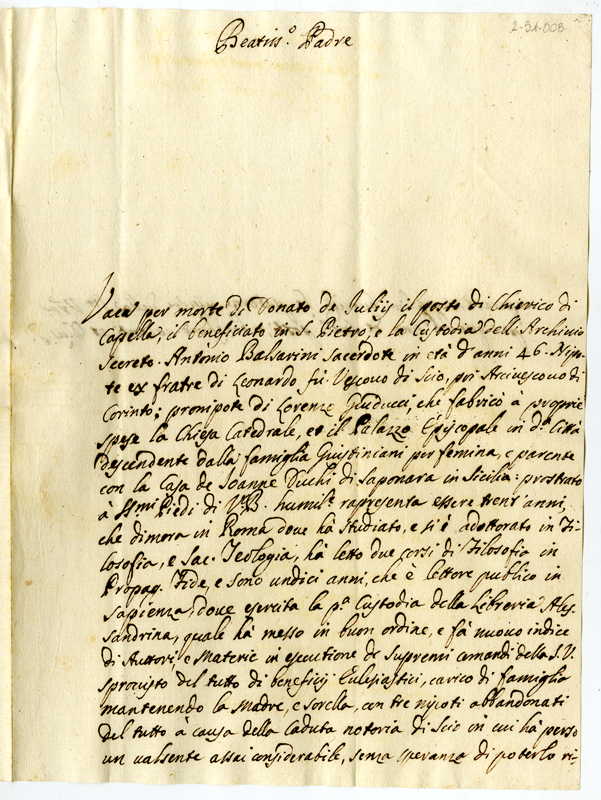 2-51-008
Beatiss.º Padre
Vaca per morte di Donato de Juliis il posto di Chierico di
Cappella, il beneficiato in S. Pietro, e la Custodia dell'Archivio
Secreto. Antonio Balsarini Sacerdote in età d'anni 46. Nipo-
te ex fratre di Leonardo fù Vescovo di Scio, poi Arcivescovo di
Corinto; pronipote di Lorenzo Giuducci, che fabricò à proprie
spese la Chiesa Catedrale, et il Palazzo Episcopale in d.ª Città
descendente dalla famiglia Giustiniani per femina, e parente
con la Casa de Joanne Duchi di Saponara in Sicilia: prostrato
à SS.mi Piedi di V.B. humil.e rapresenta essere trent'anni,
che dimora in Roma dove hà studiato, e si è adottorato in Fi-
losofia, e Sac. Teologia, hà letto due corsi di Filosofia in
Propag. Fide, e sono undici anni, che è lettore publico in
Sapienza, dove esercita la p.ª Custodia della Libreria Ales-
sandrina, quale hà messo in buon ordine, e fà nuovo indice
di Auttori, e Materie in esecutione de supremi comandi della S.V.
sprovisto del tutto di beneficij Eclesiastici, carico di famiglia
mantenendo la Madre, e sorella, con tre nipoti abbandonati
del tutto à causa della Caduta notoria di Scio in cui hà perso
un valsente assai considerabile, senza speranza di poterlo ri-